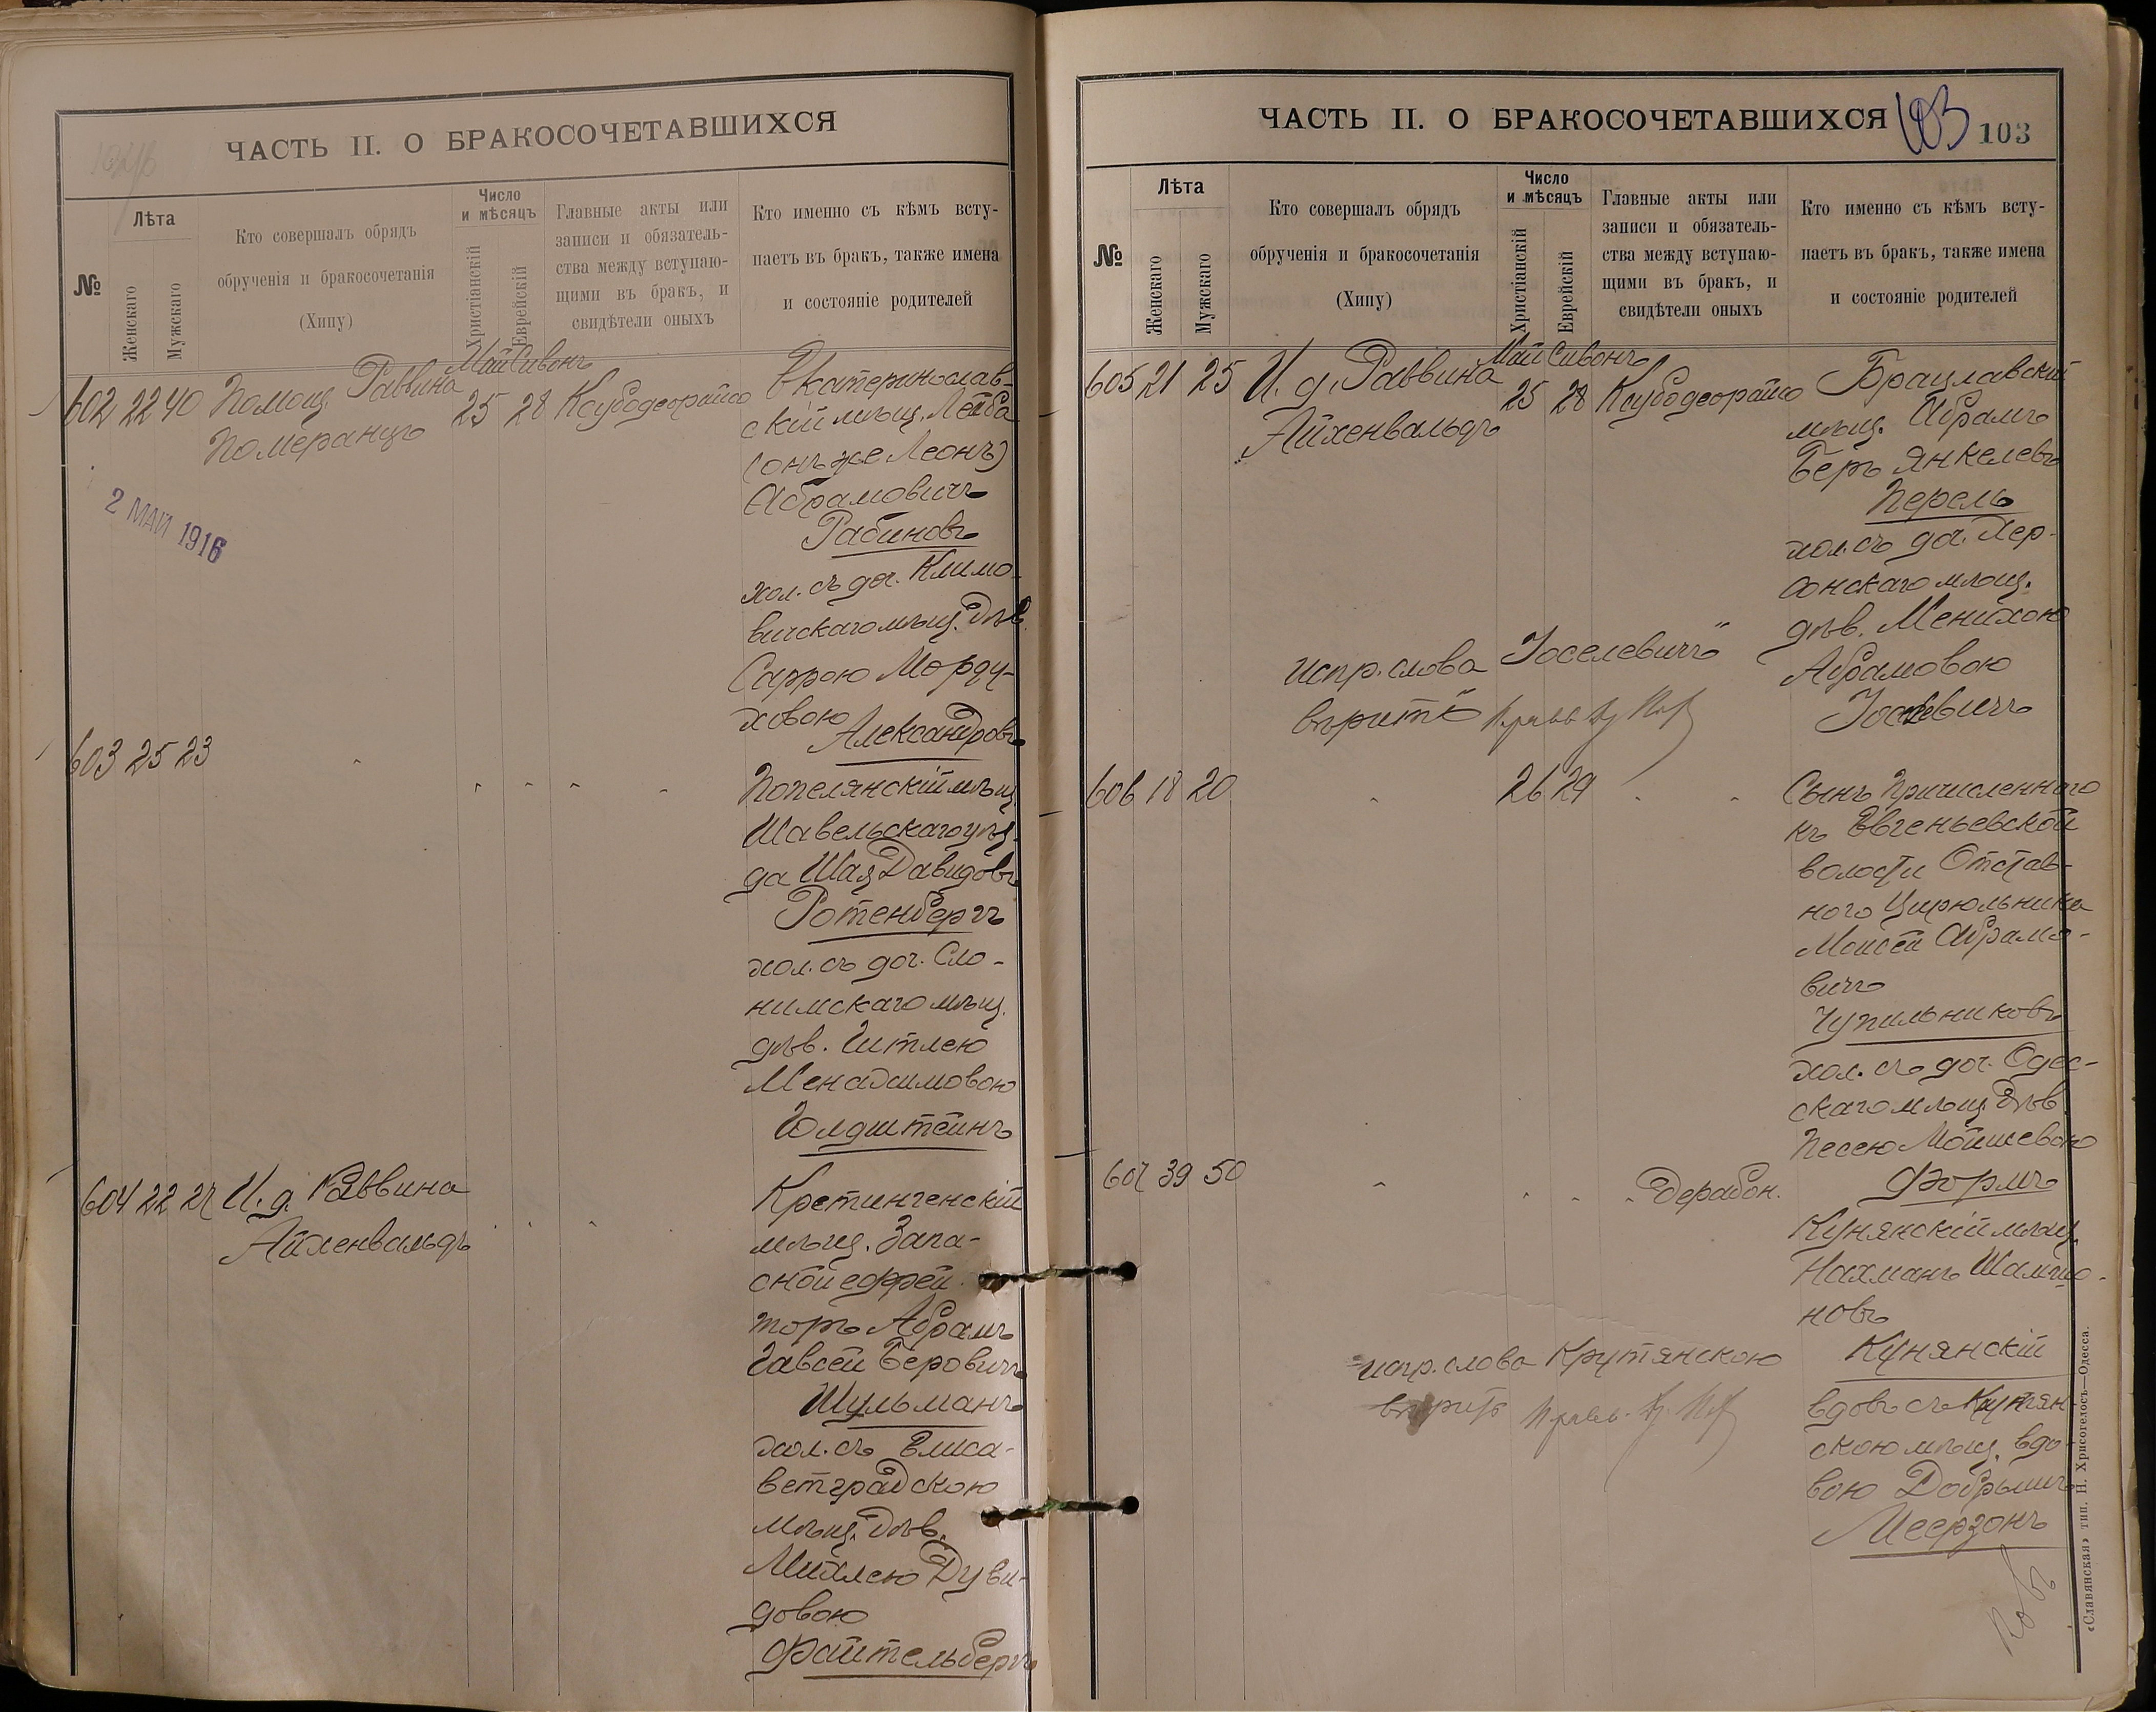 ЧАСТЬ II. О БРАКОСОЧЕТАВШИХСЯ
№
Лѣта
Женскаго
Мужскаго
Кто совершалъ обрядъ
обрученія и бракосочетанія
(Хипу)
Число
и мѣсяцъ
Христіанскій
Еврейскій
Главные акты или
записи и обязатель-
ства между вступаю-
щими въ бракъ, и
свидѣтели оныхъ
Кто именно съ кѣмъ всту-
паетъ въ бракъ, также имена
и состояніе родителей
602 22 40 Помощ. Раввина
Померанцъ
Май Сивонъ
25 28
2 МАЙ 1916
Екатеринослав-
скій мѣщ. Лейба
(онъ же Леонъ)
Абрамовичъ
Рабиновъ
хол. съ доч. Климо-
вичскаго мѣщ. дѣв.
Саррою Морду-
ховою
Александровъ
603 25 23
Попелянскій мѣщ.
Шавельскаго уѣз-
да Шая Давидовъ
Ротенбергъ
хол. съ доч. Сло-
нимскаго мѣщ.
дѣв. Гитлею
Менахимовою
Голдштейнъ
604 22 27 И. д. Раввина
Айхенвальдъ
Кретингенскій
мѣщ. Запа-
сной ефрей-
торъ Абрамъ
Говсей Беровичъ
Шульманъ
хол. съ Елиса-
ветградскою
мѣщ. дѣв.
Михлею Дуви-
довою
Файтельбергъ
ЧАСТЬ II. О БРАКОСОЧЕТАВШИХСЯ
103
103
№
Лѣта
Женскаго
Мужскаго
Кто совершалъ обрядъ
обрученія и бракосочетанія
(Хипу)
Число
и мѣсяцъ
Христіанскій
Еврейскій
Главные акты или
записи и обязатель-
ства между вступаю-
щими въ бракъ, и
свидѣтели оныхъ
Кто именно съ кѣмъ всту-
паетъ въ бракъ, также имена
и состояніе родителей
605 21 25 И. д. Раввина
Айхенвальдъ
Май Сивонъ
25 28
Брацлавскій
мѣщ. Абрамъ
Беръ Янкелевъ
Перель
хол. съ доч. Хер-
сонскаго мѣщ.
дѣв. Менихою
Абрамовою
испр. слова Іоселевичъ"
вѣрить
606 18 20
26 29
Сынъ Причисленнаго
къ Евгеньевской
волости Отстав-
ного Цирюльника
Моисей Абрамо-
вичъ
Чупильниковъ
хол. съ доч. Одес-
скаго мѣщ. дѣв.
Песею Мойшевою
Формъ
607 39 50
Дерабон.
Кунянскій мѣщ.
Нахманъ Шамшо-
новъ
Кунянскій
испр. слова Крутянскою
вѣрить
вдов. съ Крутян-
скою мѣщ. вдо-
вою Добрышъ
Меерзонъ
«Славянская» тип. Н. Хрисогелосъ—Одесса.